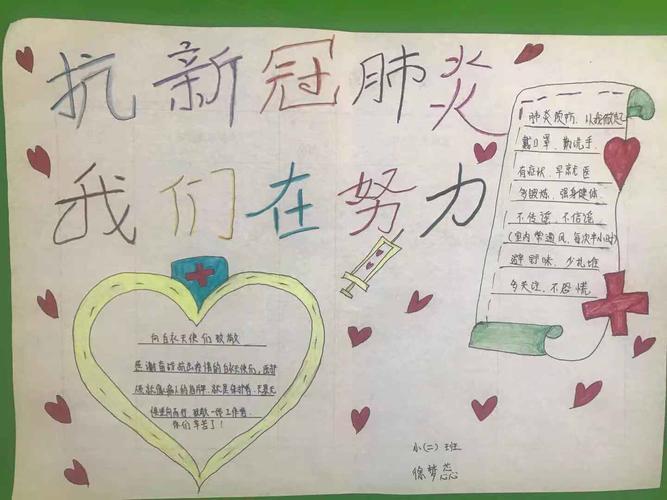 抗新冠肺炎
我们在努力
肺炎预防，从我做起
戴口罩、勤洗手、
有症状、早就医
多锻炼、强身健体
不传谣、不信谣
(室内常通风，每次半小时)
避野味、少扎堆
多关注、不恐慌
向白衣天使们致敬
感谢奋战抗击疫情的白衣天使们，
你们辛苦了！
小(二)班
徐梦蕊